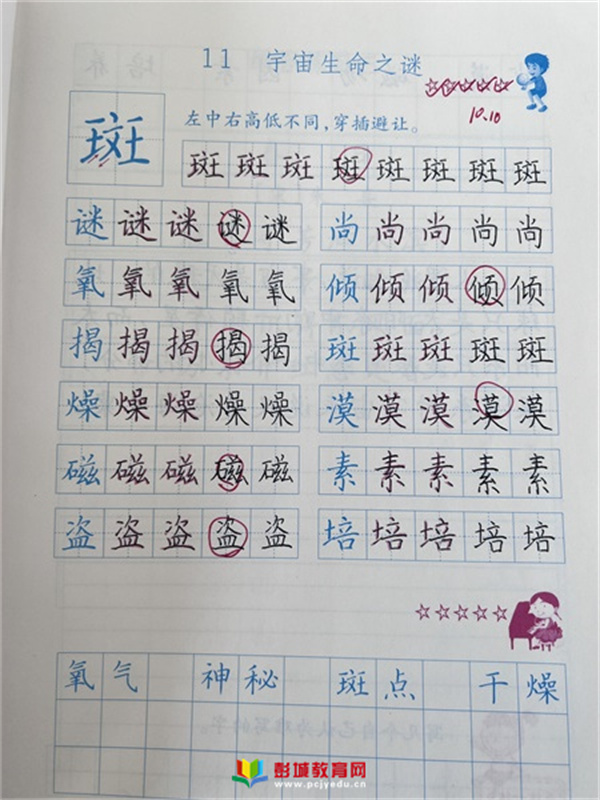 11 宇宙生命之谜
☆☆☆☆☆
10.10
斑
左中右高低不同，穿插避让。
斑斑斑斑斑斑斑斑
谜谜谜谜谜 尚尚尚尚尚
氧氧氧氧氧 倾倾倾倾倾
揭揭揭揭揭 斑斑斑斑斑
燥燥燥燥燥 漠漠漠漠漠
磁磁磁磁磁 素素素素素
盗盗盗盗盗 培培培培培
☆☆☆☆☆
氧气 神秘 斑点 干燥
彭城教育网
www.pcjyedu.cn